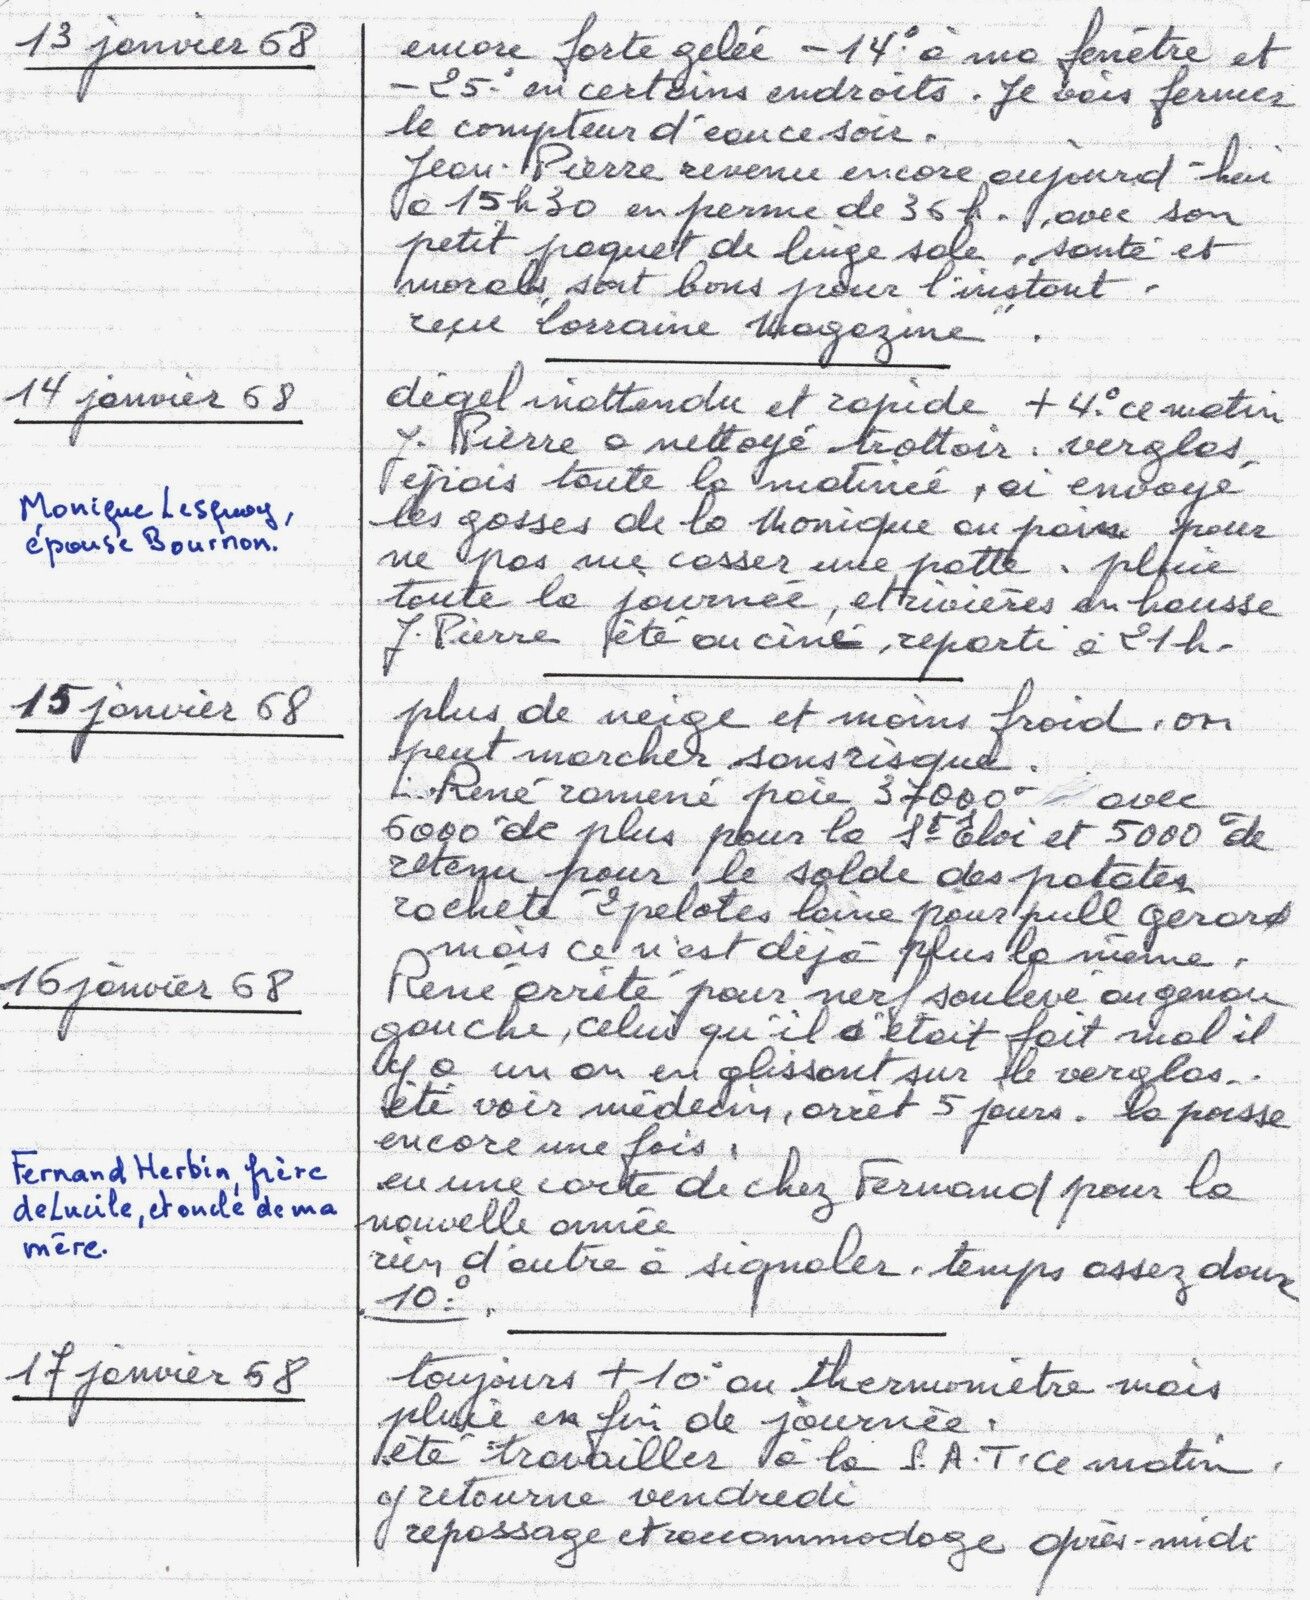 13 janvier 68
encore forte gelée -14° à ma fenêtre et
-25° en certains endroits. Je vais fermer
le compteur d'eau ce soir.
Jean-Pierre revenu encore aujourd-hui
à 15h30 en perme de 36h. avec son
petit paquet de linge sale, santé et
morals sont bons pour l'instant.
reçu "Lorraine Magazine".
14 janvier 68
dégel inattendu et rapide +4° ce matin
J. Pierre a nettoyé trottoir. verglas
épais toute la matinée, ai envoyé
les gosses de la Monique au pain pour
ne pas me casser une patte. pluie
toute la journée, et rivières en hausse
J. Pierre été au ciné, reparti à 21h.
Monique Lesquoy,
épouse Bournon.
15 janvier 68
plus de neige et moins froid. on
peut marcher sans risque.
René ramené paie 37000 avec
6000 de plus pour la St Eloi et 5000 de
retenu pour le solde des patates
racheté 2 pelotes laine pour pull Gérard
mais ce n'est déjà plus la même.
16 janvier 68
René arrêté pour nerf soulevé au genou
gauche, celui qu'il s'était fait mal il
y a un an en glissant sur le verglas..
été voir médecin, arrêt 5 jours. la poisse
encore une fois.
eu une carte de chez Fernand pour la
nouvelle année
rien d'autre à signaler. temps assez doux
10°.
Fernand Herbin, frère
de Lucile, et oncle de ma
mère.
17 janvier 68
toujours +10° au thermomètre mais
pluie en fin de journée.
été travailler à la S.A.T. ce matin.
y retourne vendredi
repassage et raccommodage après-midi